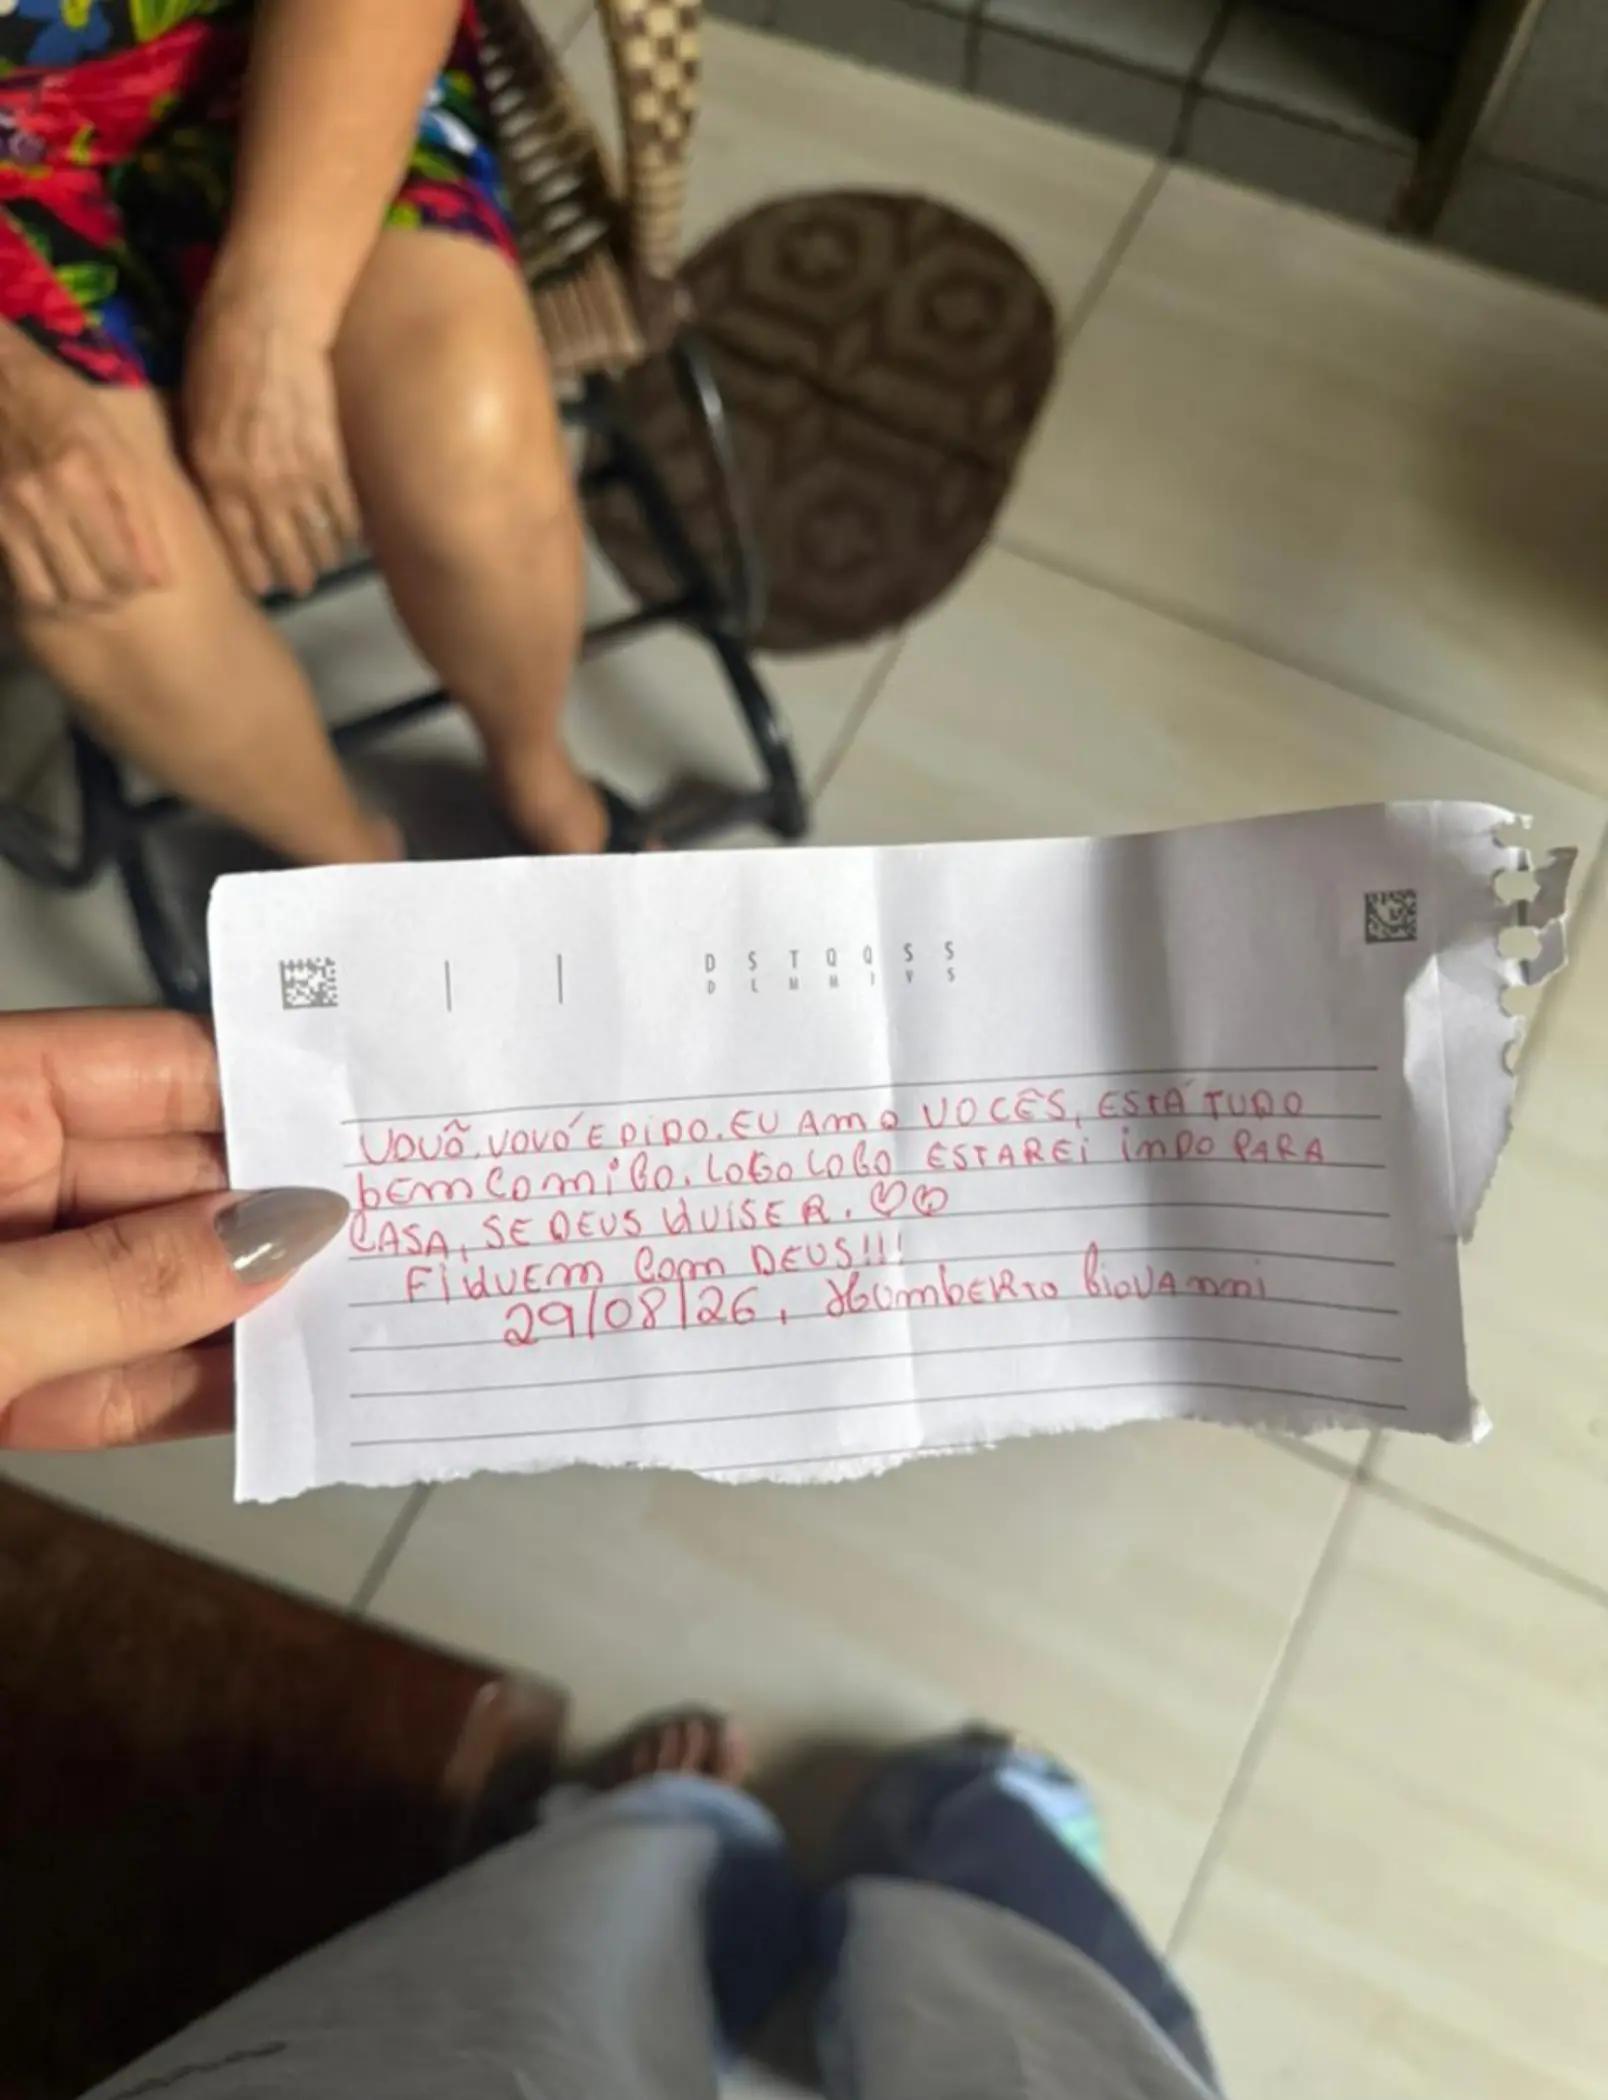 D S T Q Q S S
D L M M J V S
VOVÔ, VOVÓ E DIDO. EU AMO VOCÊS, ESTÁ TUDO
BEM COMIGO. LOGO LOGO ESTAREI INDO PARA
CASA, SE DEUS QUISER. ♡♡
FIQUEM COM DEUS!!!
29/08/26, HUMBERTO GIOVANNI